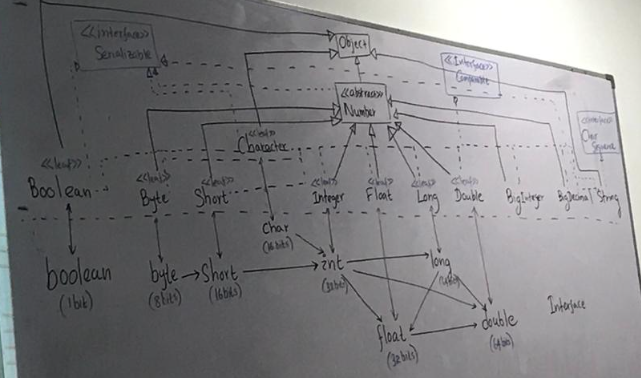 <<interface>>
Serializable
Object
<<Interface>>
Comparable
<<abstract>>
Number
<<interface>>
Char
Sequence
<<leaf>>
Character
<<leaf>>
Boolean
<<leaf>>
Byte
<<leaf>>
Short
<<leaf>>
Integer
<<leaf>>
Float
<<leaf>>
Long
<<leaf>>
Double
BigInteger
BigDecimal
String
char
(16bits)
boolean
(1bit)
byte
(8bits)
Short
(16bits)
int
(32bits)
long
(64bits)
float
(32bits)
double
(64bits)
Interface